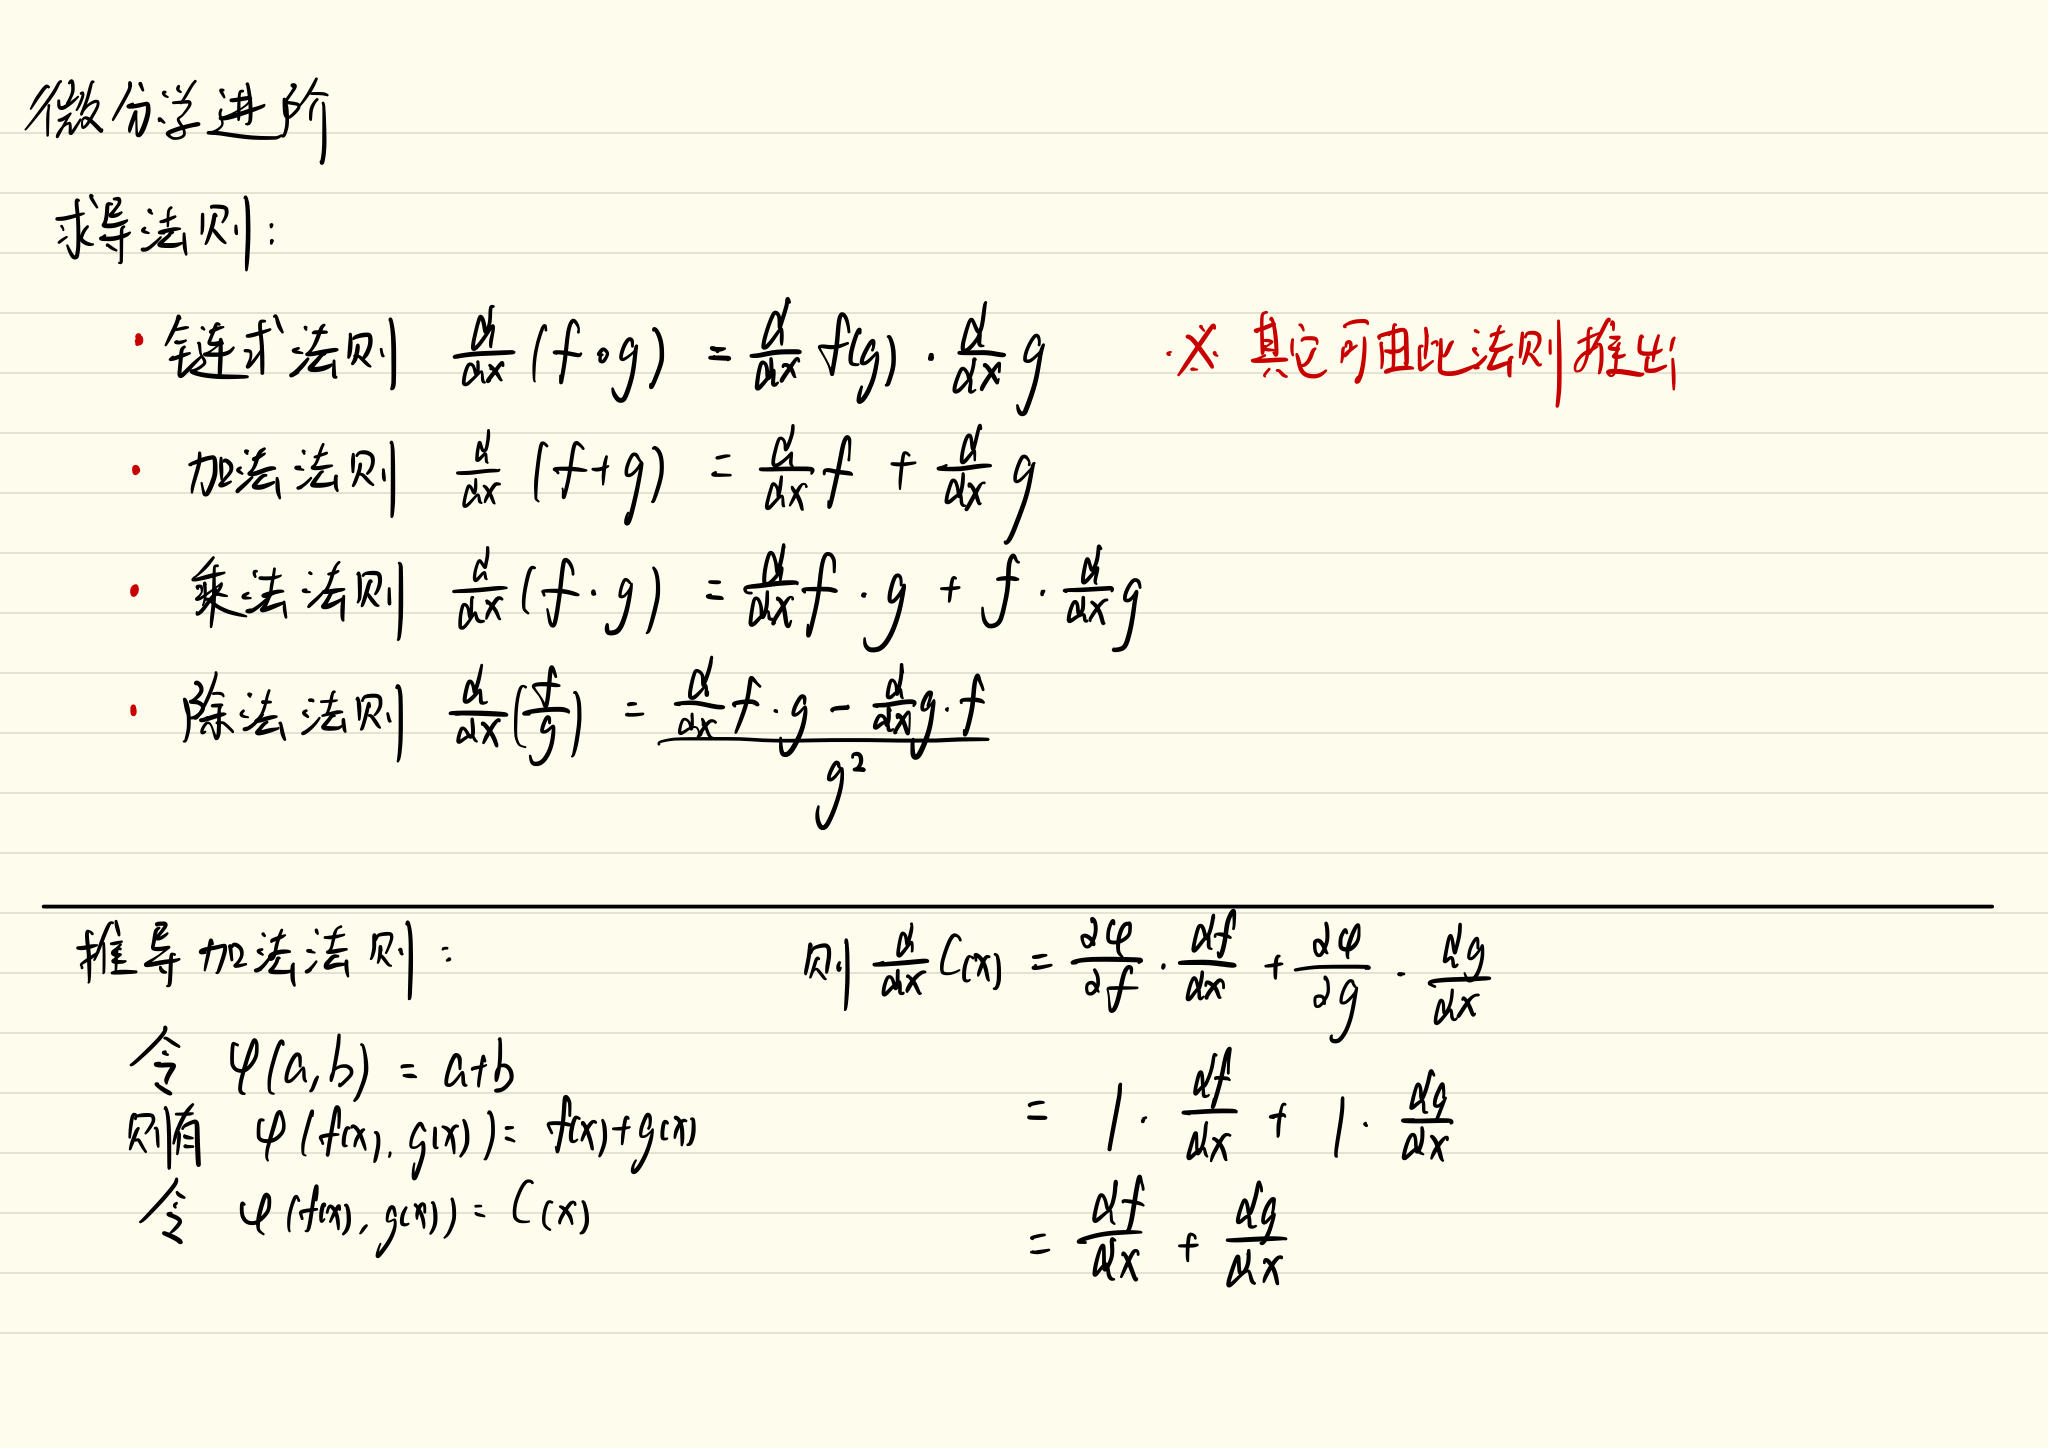 微分学进阶
求导法则:
· 链式法则 d/dx (f∘g) = d/dx f(g) · d/dx g ·※· 其它可由此法则推出
· 加法法则 d/dx (f+g) = d/dx f + d/dx g
· 乘法法则 d/dx (f·g) = d/dx f · g + f · d/dx g
· 除法法则 d/dx (f/g) = (d/dx f · g - d/dx g · f) / g²
推导加法法则:
令 φ(a,b) = a+b
则有 φ(f(x), g(x)) = f(x)+g(x)
令 φ(f(x), g(x)) = C(x)
则 d/dx C(x) = ∂φ/∂f · df/dx + ∂φ/∂g · dg/dx
= 1 · df/dx + 1 · dg/dx
= df/dx + dg/dx